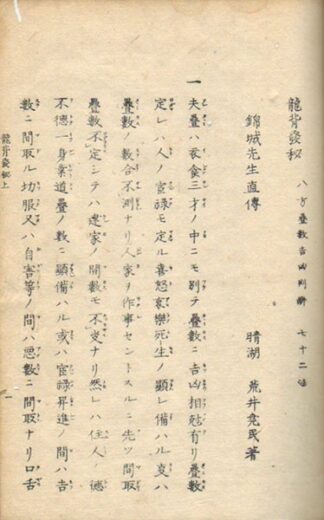 龍背發秘 八方疊數吉凶判断 七十二法
錦城先生直傳
晴湖 荒井尭民著
一
夫疊ハ衣食三才ノ中ニモ別テ疊數ニ吉凶相尅有リ疊數
定レハ人ノ官禄モ定ル喜怒哀樂死生ノ顕レ備ハル支ハ
疊數ノ數合不測ナリ人家ヲ作事セントスルニ先ツ間取
疊數不定シテハ造家ノ間數モ不定ナリ然レハ住人ノ德
不德一身業道疊ノ數ニ顕備ハル或ハ官禄昇進ノ間ハ吉
數ニ間取ル切服又ハ自害等ノ間ハ悪數ニ間取ナリ口舌
龍背發秘上
一